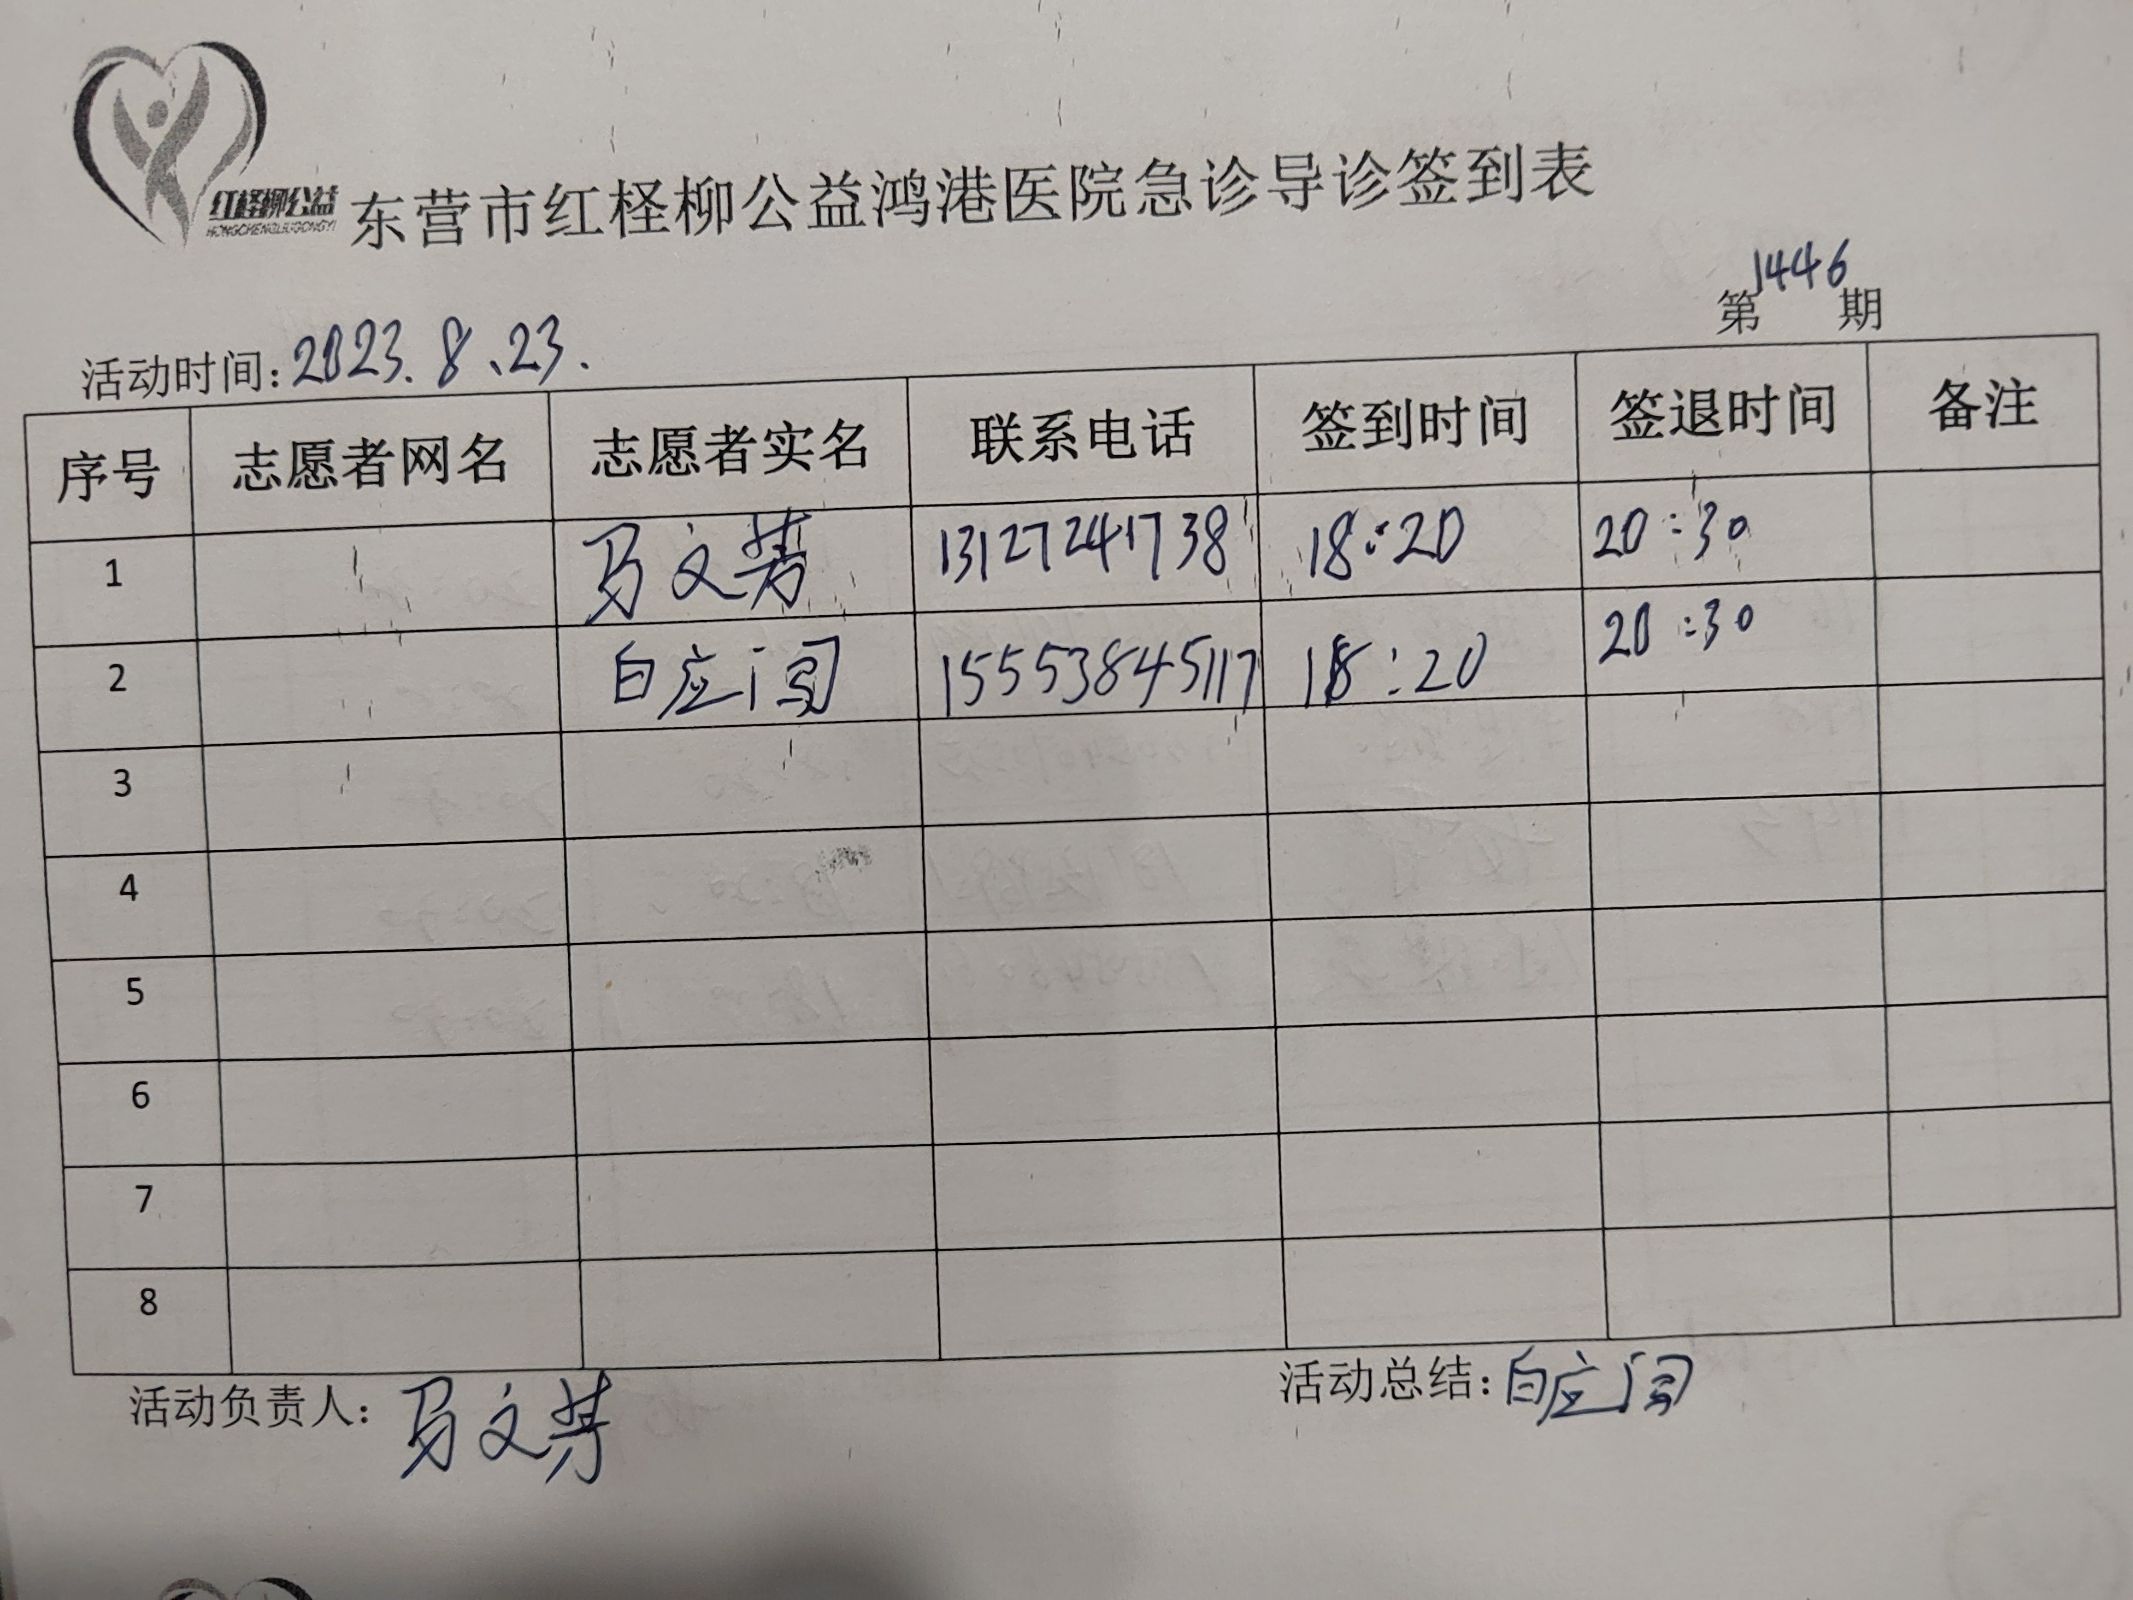 红柽柳公益
HONGCHENGLIUGONGYI
东营市红柽柳公益鸿港医院急诊导诊签到表
第1446期
活动时间:2023.8.23.
序号 志愿者网名 志愿者实名 联系电话 签到时间 签退时间 备注
1 马文芳 13127241738 18:20 20:30
2 白应阁 15553845117 18:20 20:30
3
4
5
6
7
8
活动负责人:马文芳 活动总结:白应阁